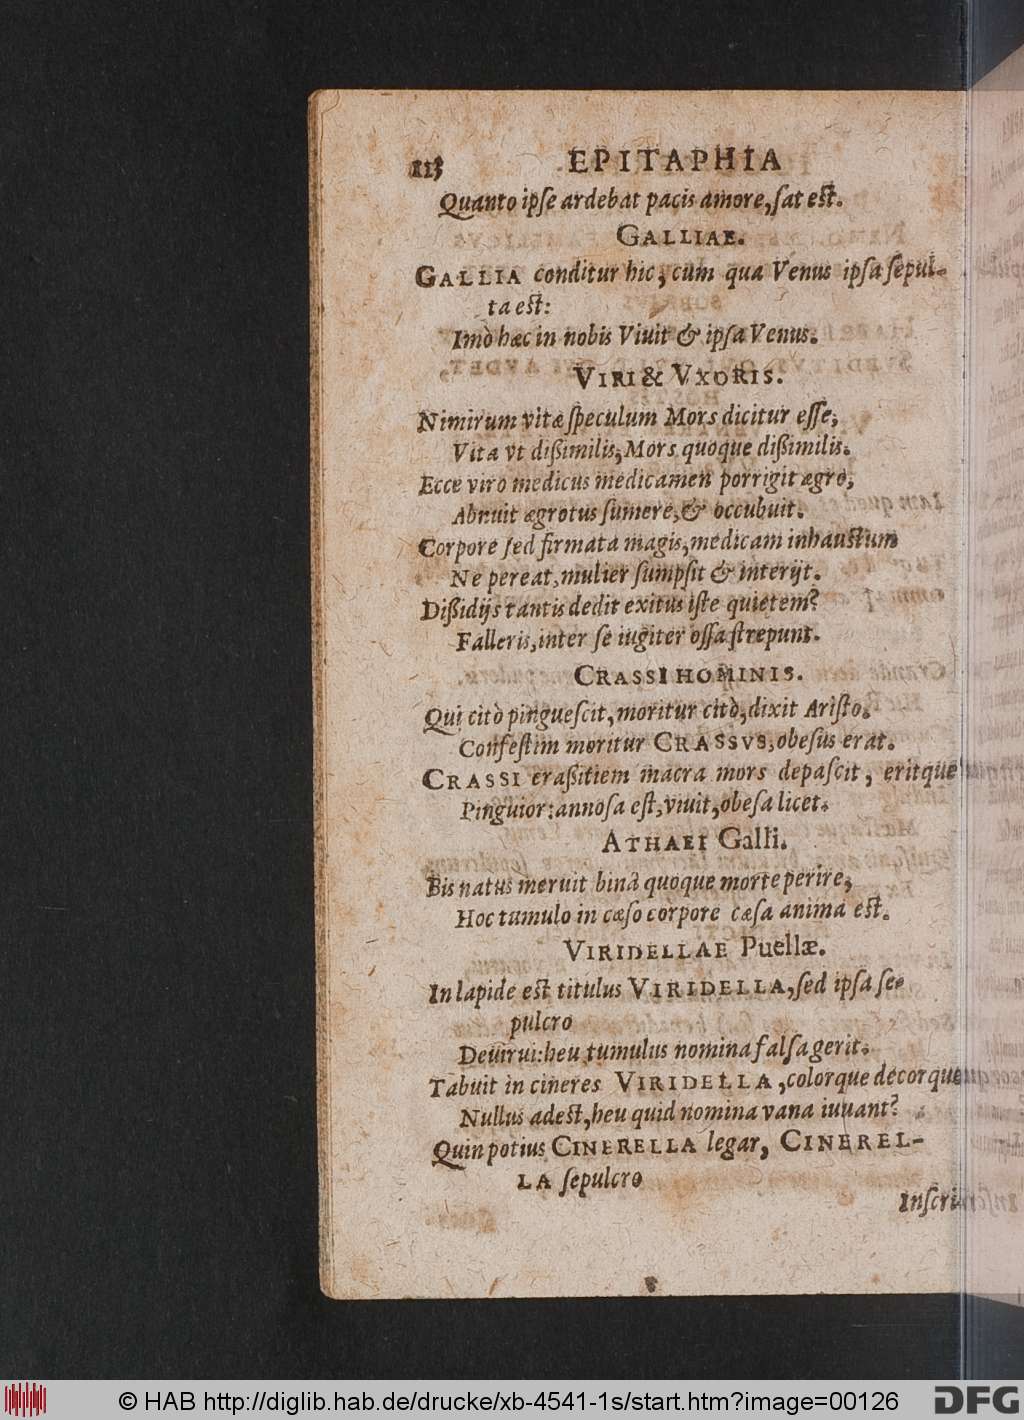 113 EPITAPHIA
Quanto ipſe ardebat pacis amore, ſat eſt.
GALLIAE.
GALLIA conditur hic, cum qua Venus ipſa ſepul-
ta eſt:
Imò hæc in nobis Viuit & ipſa Venus.
VIRI & VXORIS.
Nimirum vitæ ſpeculum Mors dicitur eſſe,
Vita vt dißimilis, Mors quoque dißimilis.
Ecce viro medicus medicamen porrigit ægro,
Abnuit ægrotus ſumere, & occubuit.
Corpore ſed firmata magis, medicam inhauſtum
Ne pereat, mulier ſumpſit & interijt.
Dißidijs tantis dedit exitus iſte quietem?
Falleris, inter ſe iugiter oſſa ſtrepunt.
CRASSI HOMINIS.
Qui citò pingueſcit, moritur citò, dixit Ariſto.
Confeſtim moritur CRASSVS, obeſus erat.
CRASSI craßitiem macra mors depaſcit, eritque
Pinguior: annoſa eſt, viuit, obeſa licet.
ATHAEI Galli.
Bis natus meruit binâ quoque morte perire,
Hoc tumulo in cæſo corpore cæſa anima eſt.
VIRIDELLAE Puellæ.
In lapide eſt titulus VIRIDELLA, ſed ipſa ſe-
pulcro
Deuirui: heu tumulus nomina falſa gerit.
Tabuit in cineres VIRIDELLA, colorque decorque
Nullus adeſt, heu quid nomina vana iuuant?
Quin potius CINERELLA legar, CINEREL-
LA ſepulcro
© HAB http://diglib.hab.de/drucke/xb-4541-1s/start.htm?image=00126
DFG